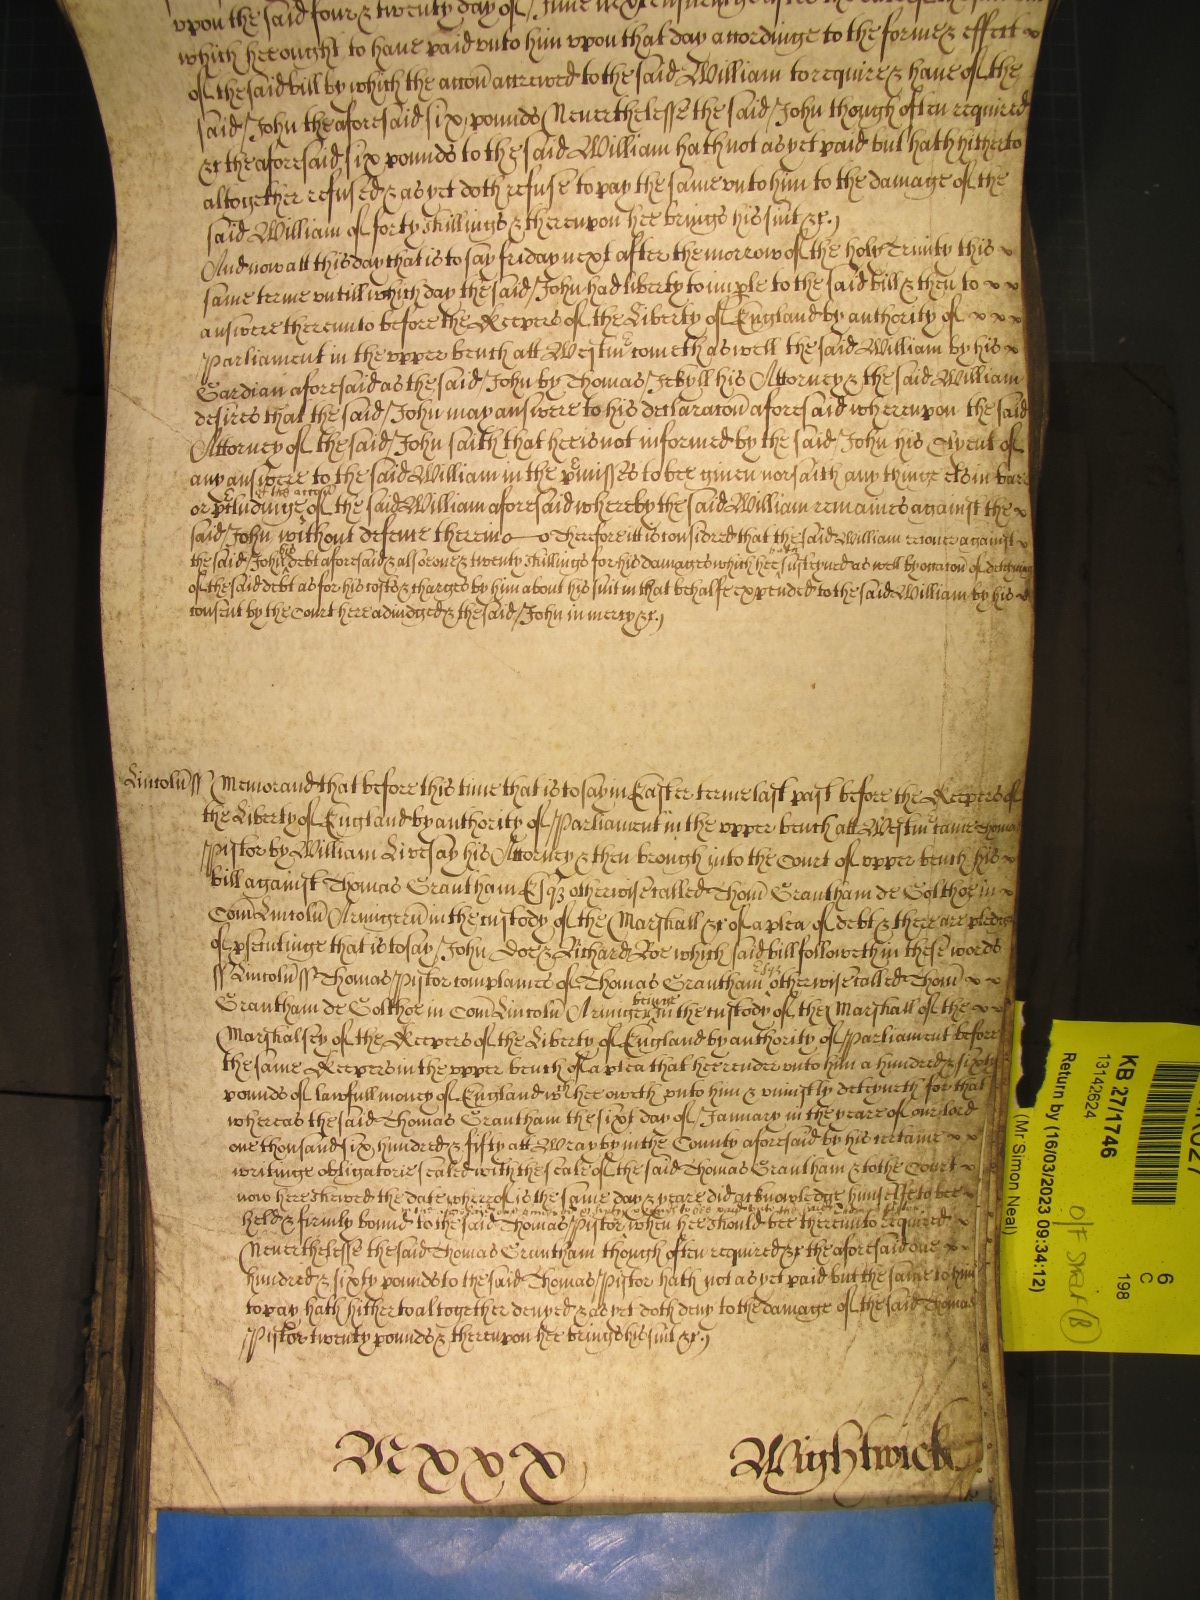 upon the said four & twenty day of June next ensuinge
which hee ought to have paid unto him upon that day accordinge to the forme & effect
of the said bill by which the accon accrewed to the said William to require & have of the
said John the aforesaid six pounds Neverthelesse the said John though often required
&c the aforesaid six pounds to the said William hath not as yet paid but hath hitherto
altogether refused & as yet doth refuse to pay the same unto him to the damage of the
said William of forty shillings & thereupon hee brings his suit &c.
And now att this day that is to say friday next after the morrow of the holy Trinity this
same terme untill which day the said John had liberty to imple to the said bill & then to
answere thereunto before the Keepers of the Liberty of England by authority of
Parliament in the upper bench att Westm cometh as well the said William by his
Gardian aforesaid as the said John by Thomas Jekyll his Attorney & the said William
desires that the said John may answere to his declaracon aforesaid whereupon the said
Attorney of the said John saith that hee is not informed by the said John his Clyent of
any answere to the said William in the pmisses to bee given nor saith any thinge els in barr
or pcludinge of the accon of the said William aforesaid whereby the said William remaines against the
said John without defence therein Therefore itt is considered that the said William recover against
the said John his debt aforesaid & also one & twenty shillings for his damages which hee hath susteyned as well by occacon of deteyning
of the said debt as for his costs & charges by him about his suit in that behalfe expended to the said William by his
consent by the Court here adiudged & the said John in mercy &c.
Lincoln ss Memorand that before this time that is to say in Easter terme last past before the Keepers of
the Liberty of England by authority of Parliament in the upper bench att Westm came Thomas
Pistor by William Livesay his Attorney & then brough into the Court of upper bench his
bill against Thomas Grantham Esqz otherwise called Thom Grantham de Golthoe in
Com Lincoln Armigerum in the custody of the Marshall &c of a plea of debt & there are pledges
of psentinge that is to say John Doe & Richard Roe which said bill followeth in these words
ss Lincoln ss Thomas Pistor complaines of Thomas Grantham Esqz otherwise called Thom
Grantham de Golthoe in Com Lincoln Armigerum beinge in the custody of the Marshall of the
Marshalsey of the Keepers of the Liberty of England by authority of Parliament before
the same Keepers in the upper bench of a plea that hee render unto him a hundred & sixty
pounds of lawfull money of England wch hee oweth unto him & uniustly deteyneth for that
whereas the said Thomas Grantham the sixt day of January in the yeare of our lord
one thousand six hundred & fifty att Wrayby in the County aforesaid by his certaine
writinge obligatorie sealed with the seale of the said Thomas Grantham & to the Court
now here shewed the date whereof is the same day & yeare did acknowledge himselfe to bee
held & firmly bound to the said Thomas Pistor when hee should bee thereunto required
Neverthelesse the said Thomas Grantham though often required &c the aforesaid one
hundred & sixty pounds to the said Thomas Pistor hath not as yet paid but the same to him
to pay hath hitherto altogether denyed & as yet doth deny to the damage of the said Thomas
Pistor twenty pounds & thereupon hee brings his suit &c.
Wightwick
KB 27/1746
13142624
Return by (16/03/2023 09:34:12)
(Mr Simon Neal)
6
C
198